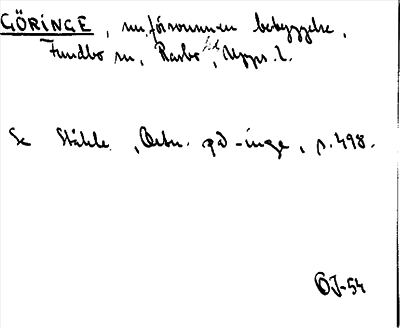 GÖRINGE, nu försvunnen bebyggelse,
Funbo sn, Rasbo hd, Upps. l.
Se Ståhle, Ortn. på -inge, s. 498.
OJ-54